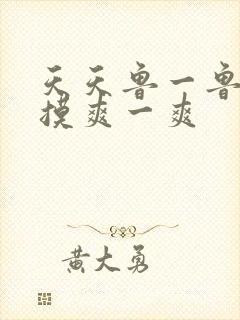 天天鲁一鲁
摸爽一爽
黄大勇